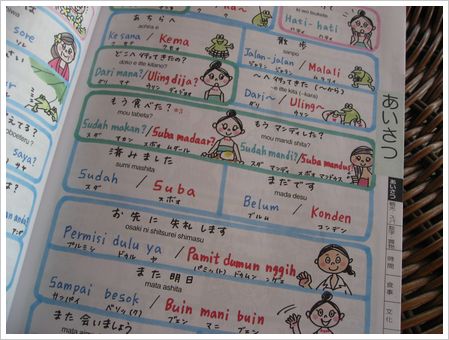 あちらへ
..achira e
Ke sana / Kema
クサナ クモ
wo tsukete
Hati-hati
ハティ ハティ
sore
どこへ行ってきたの?
doko e itte kitano?
Dari mana? / Uling dija?
ダリ マナ ウリン ディジョ
散歩
sanpo
Jalan-jalan / Malali
ジャラン ジャラン ムラリ
へ行ってきた(〜から)
-e itte kita (-kara)
Dari〜 / Uling〜
ダリ ウリン
もう食べた?
mou tabeta?
Sudah makan? / Suba madaar?
もうマンディした?
mou mandi shita?
Sudah mandi? / Suba mandus?
済みました
sumi mashita
Sudah / Suba
スダ スボ
まだです
mada desu
Belum / Konden
ブルム コンデン
Saya?
お先に失礼します
osaki ni shitsurei shimasu
Permisi dulu ya / Pamit dumun nggih
プルミシ ドゥル ヤ
また明日
mata ashita
Sampai besok / Buin mani buin
サンパイ ベソッ(ク) ブエン マニ ブエン
また会いましょう
あいさつ
あいさつ
時間
食事
文化